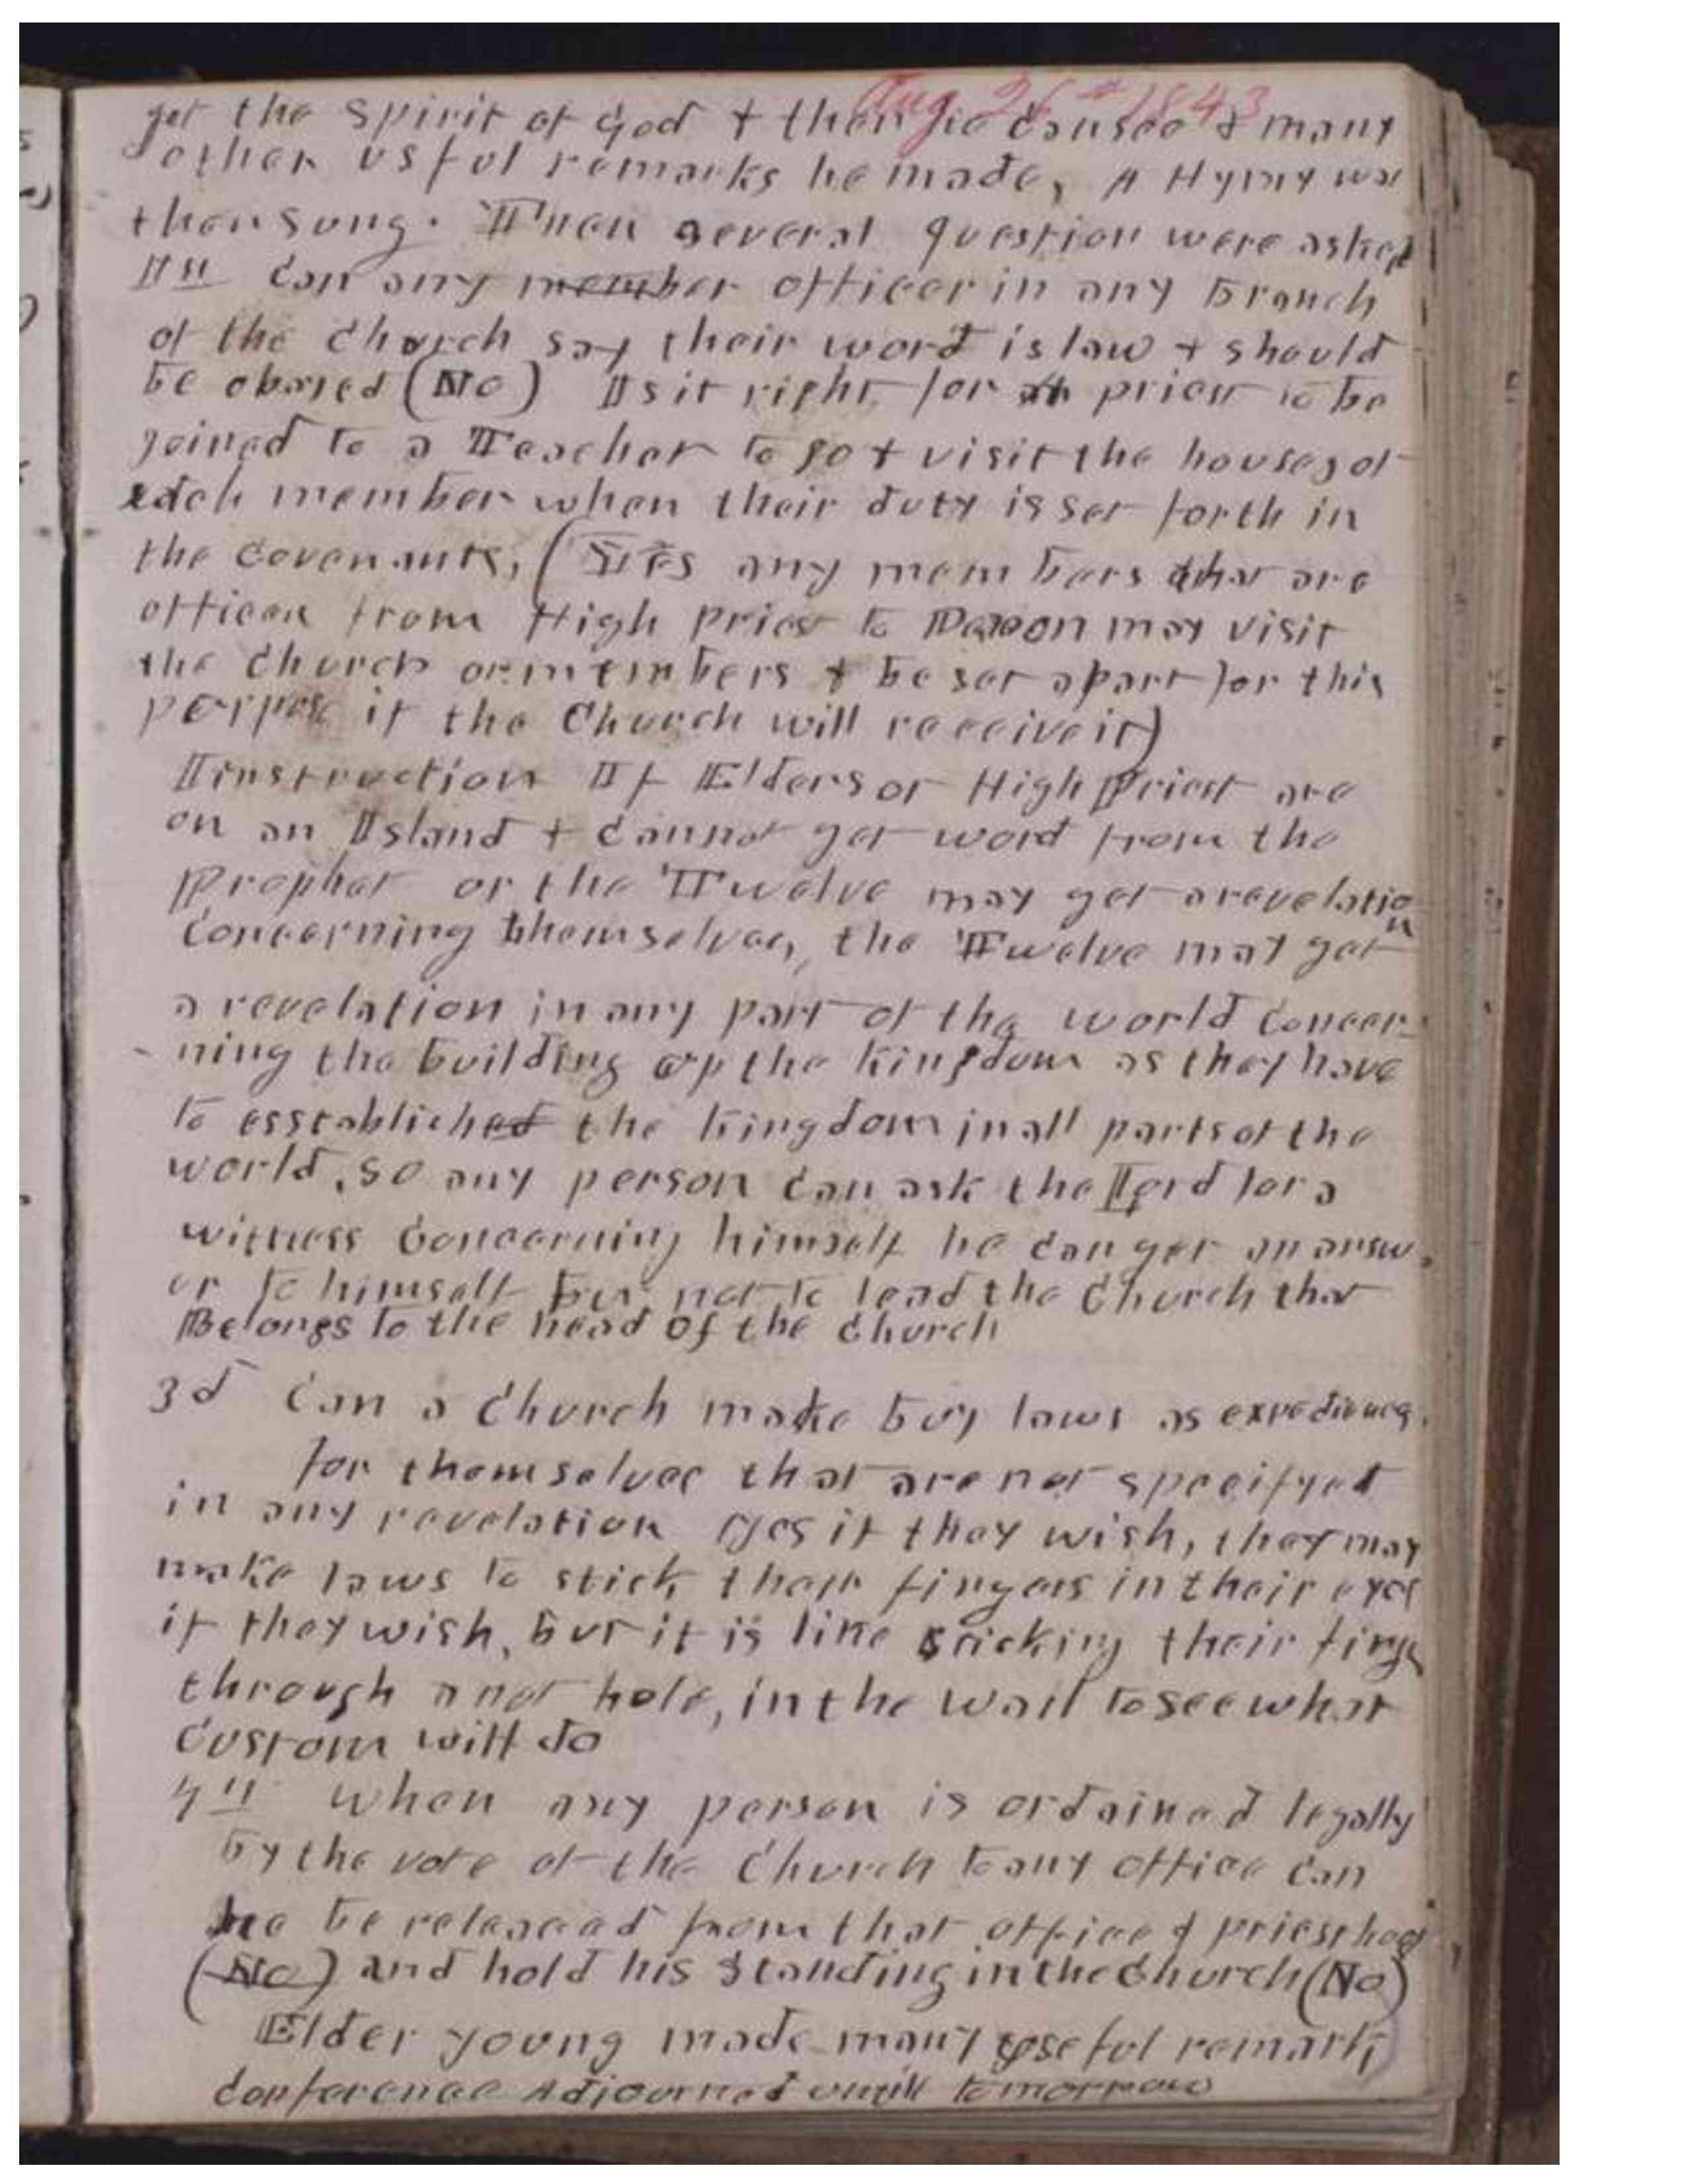 Aug 26th 1843
get the spirit of God & then he caused & many
other usful remarks he made, A Hymy was
then Sung. Then several question were asked
1st Can any member officer in any Branch
of the Church say their word is law & should
be obayed (No) Is it right for a priest to be
joined to a Teacher to go & visit the houses of
each member when their duty is set forth in
the Covenants, (Yes any members that are
officer from High Priest to Deacon may visit
the Church or members & be set apart for this
perpose if the Church will receive it)
Iinstruction If Elders or High Priest are
on an Island & Cannot get word from the
Prophet or the Twelve may get a revelation
Concerning themselves, the Twelve may get
a revelation in any part of the world Concer-
ning the building up the kingdom as they have
to esstabliched the kingdom in all parts of the
world, so any person can ask the Lord for a
witness Concerning himself he can get an answ-
er to himself but not to lead the Church that
Belongs to the head of the Church
3d Can a Church make buy laws as
for themselves that are not specifyed
in any revelation yes if they wish, they may
make laws to stick their fingers in their eyes
if they wish, but it is like sticking their finge
through a not hole, in the wall to see what
Custom will do
4th When any person is ordained legally
by the vote of the Church to any office can
he be releaced from that office & priesthood
(No) and hold his Standing in the Church (No)
Elder young made many useful remark,
Conference Adjourned untill tomorrow